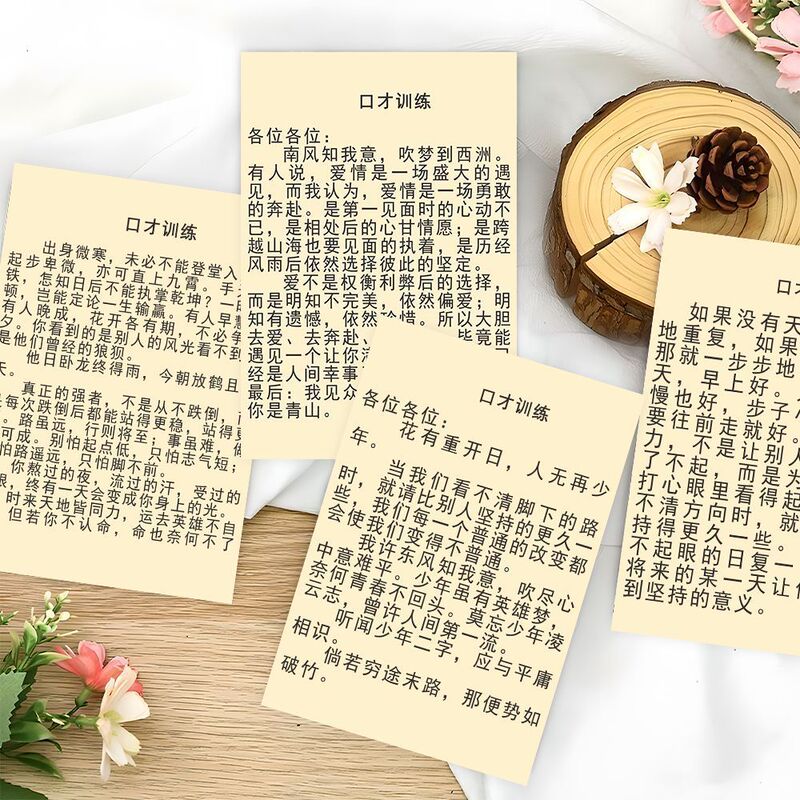 口才训练
出身微寒，未必不能登堂入
起步卑微，亦可直上九霄。手
铁，怎知日后不能执掌乾坤？一
顿，岂能定论一生输赢。有人早慧
有人晚成，花开各有期，不必争
夕。你看到的是别人的风光看不到
是他们曾经的狼狈。
他日卧龙终得雨，今朝放鹤且
天。
真正的强者，不是从不跌倒，而
是每次跌倒后都能站得更稳，站得更
。路虽远，行则将至；事虽难，做
可成。别怕起点低，只怕志气短；
怕路遥远，只怕脚不前。
你熬过的夜，流过的汗，受过的
眼，终有一天会变成你身上的光。
时来天地皆同力，运去英雄不自
但若你不认命，命也奈何不了
口才训练
各位各位：
南风知我意，吹梦到西洲。
有人说，爱情是一场盛大的遇
见，而我认为，爱情是一场勇敢
的奔赴。是第一见面时的心动不
已，是相处后的心甘情愿；是跨
越山海也要见面的执着，是历经
风雨后依然选择彼此的坚定。
爱不是权衡利弊后的选择，
而是明知不完美，依然偏爱；明
知有遗憾，依然珍惜。所以大胆
去爱、去奔赴、
毕竟能
遇见一个让你
经是人间幸事
最后：我见众
你是青山。
口才训练
各位各位：
花有重开日，人无再少
年。
当我们看不清脚下的路
时，就请比别人坚持的更久一
些，我们每一个普通的改变都
会使我们变得不普通。
我许东风知我意，吹尽心
中意难平。少年虽有英雄梦，
奈何青春不回头。莫忘少年凌
云志，曾许人间第一流。
听闻少年二字，应与平庸
相识。
倘若穷途末路，那便势如
破竹。
口
如果没有天
地重复，如果
那就一步步地
天，早上好。
慢也好，步子
要往前走就好。
力，不是让别人
不起，而是
打心眼里看得起
不清方向时，就
持得更久一些。
不起眼的日复一
将来的某一天让你
到坚持的意义。